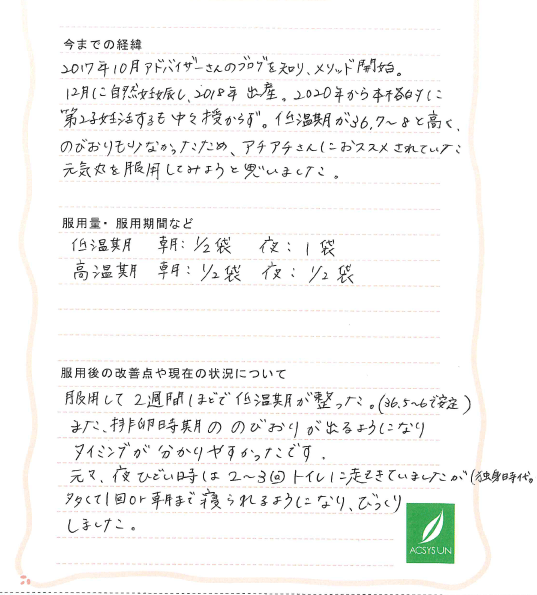 今までの経緯
2017年10月アドバイザーさんのブログを知り、メソッド開始。
12月に自然妊娠し、2018年 出産。2020年から本格的に
第2子妊活するも中々授からず。低温期が36.7〜8と高く、
のびおりも少なかったため、アチアチさんにおススメされていた
元気丸を服用してみようと思いました。
服用量・服用期間など
低温期 朝：1/2袋 夜：1袋
高温期 朝：1/2袋 夜：1/2袋
服用後の改善点や現在の状況について
服用して2週間ほどで低温期が整った。(36.5〜6で安定)
また、排卵時期ののびおりが出るようになり
タイミングが分かりやすかったです.
元々、夜ひどい時は2〜3回トイレに起きていましたが(独身時代。
多くて1回or朝まで寝られるようになり、びっくり
しました。
ACSYSUN